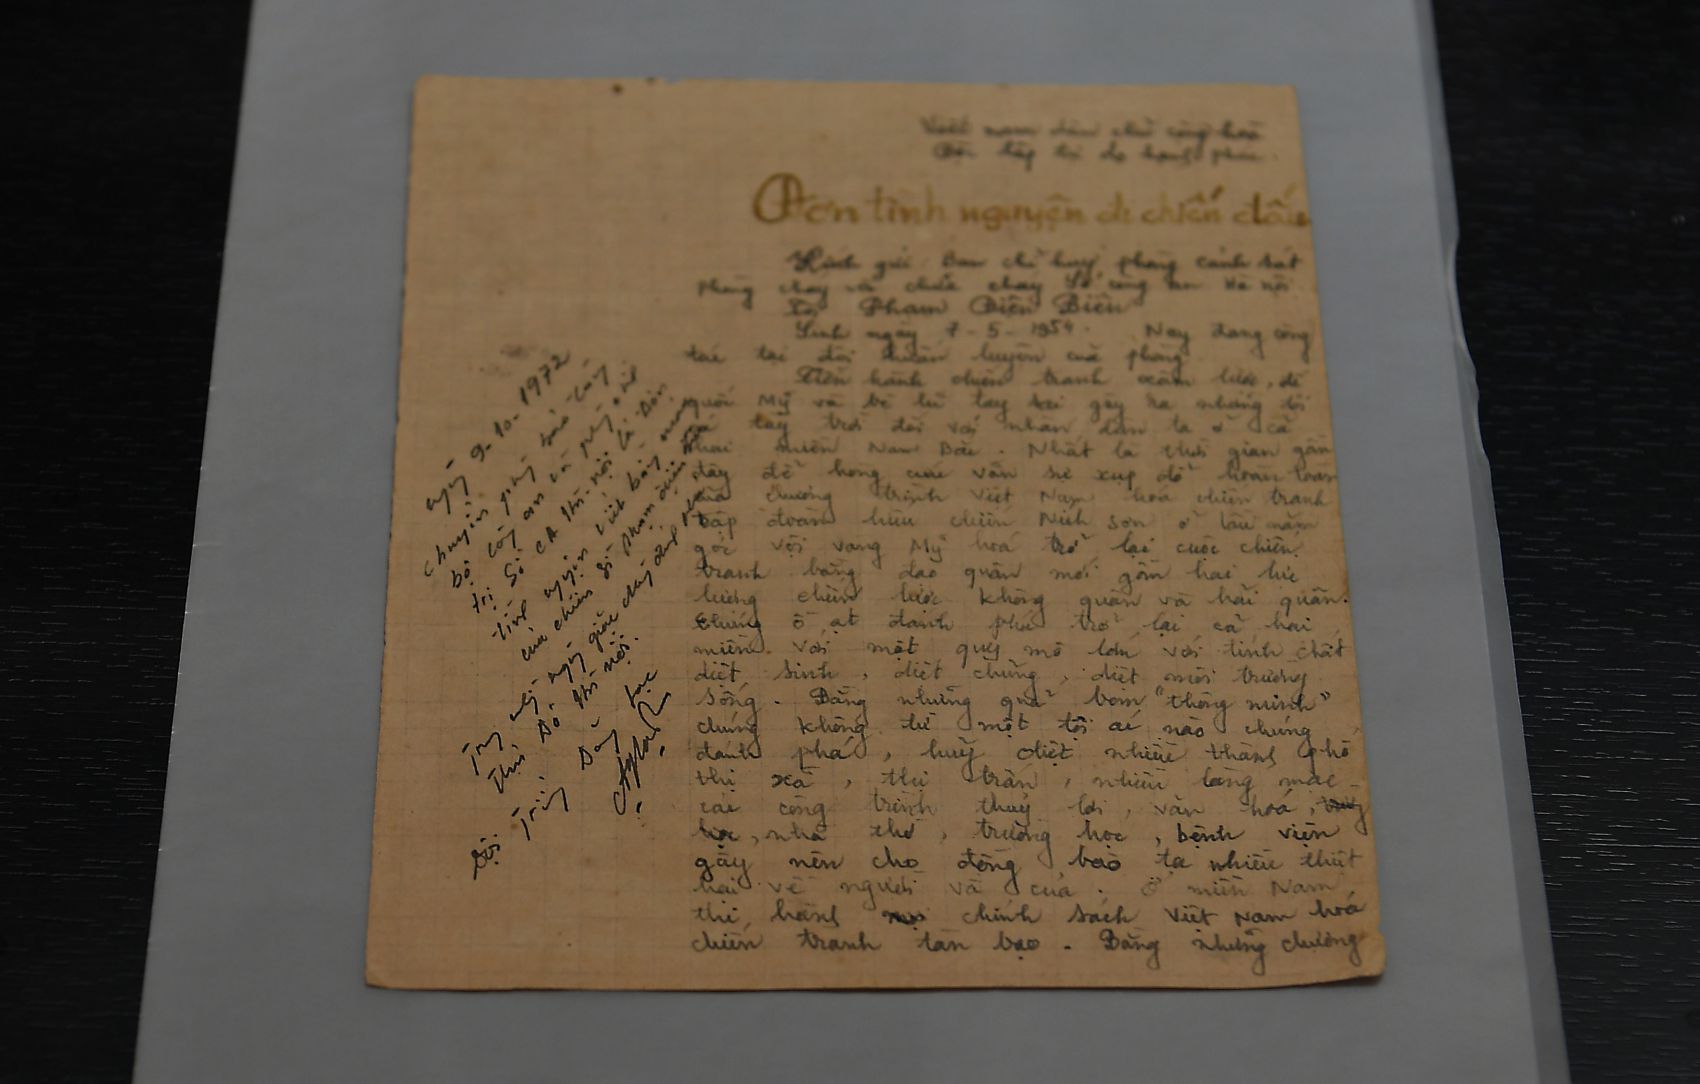 Việt nam dân chủ cộng hoà
Độc lập tự do hạnh phúc.
Đơn tình nguyện đi chiến đấu
Kính gửi Ban chỉ huy phòng cảnh sát
phòng cháy và chữa cháy Sở công an Hà nội
Tôi Phạm Điện Biên
Sinh ngày 7-5-1954. Nay đang công
tác tại đội huấn luyện của phòng
Tiến hành chiến tranh xâm lược, đế
quốc Mỹ và bè lũ tay sai gây ra những tội
ác tày trời đối với nhân dân ta ở cả
hai miền Nam Bắc. Nhất là thời gian gần
đây để hòng cứu vãn sự xụp đổ hoàn toàn
của chương trình Việt Nam hoá chiến tranh
tập đoàn hiếu chiến Ních sơn ở lầu năm
góc vội vàng Mỹ hoá trở lại cuộc chiến
tranh bằng đạo quân mới gồm hai lực
lượng chiến lược không quân và hải quân.
chúng ồ ạt đánh phá trở lại cả hai
miền với một quy mô lớn với tính chất
diệt sinh, diệt chủng, diệt môi trường
sống. Bằng những quả bom "thông minh"
chúng không từ một tội ác nào chúng
đánh phá, huỷ diệt nhiều thành phố
thị xã, thị trấn, nhiều làng mạc
các công trình thuỷ lợi, văn hoá,
nhà thờ, trường học, bệnh viện
gây nên cho đồng bào ta nhiều thiệt
hại về người và của. Ở miền Nam
thi hành chính sách Việt Nam hoá
chiến tranh tàn bạo. Bằng những chương
ngày 9-10-1972
chuyển phòng bảo tàng
bộ công an và phòng chính
trị Sở CA Hà nội lá Đơn
tình nguyện viết bằng máu
của chiến sĩ Phạm Điện Biên
Trong những ngày giặc
Thủ Đô Hà nội.
Đội Trưởng